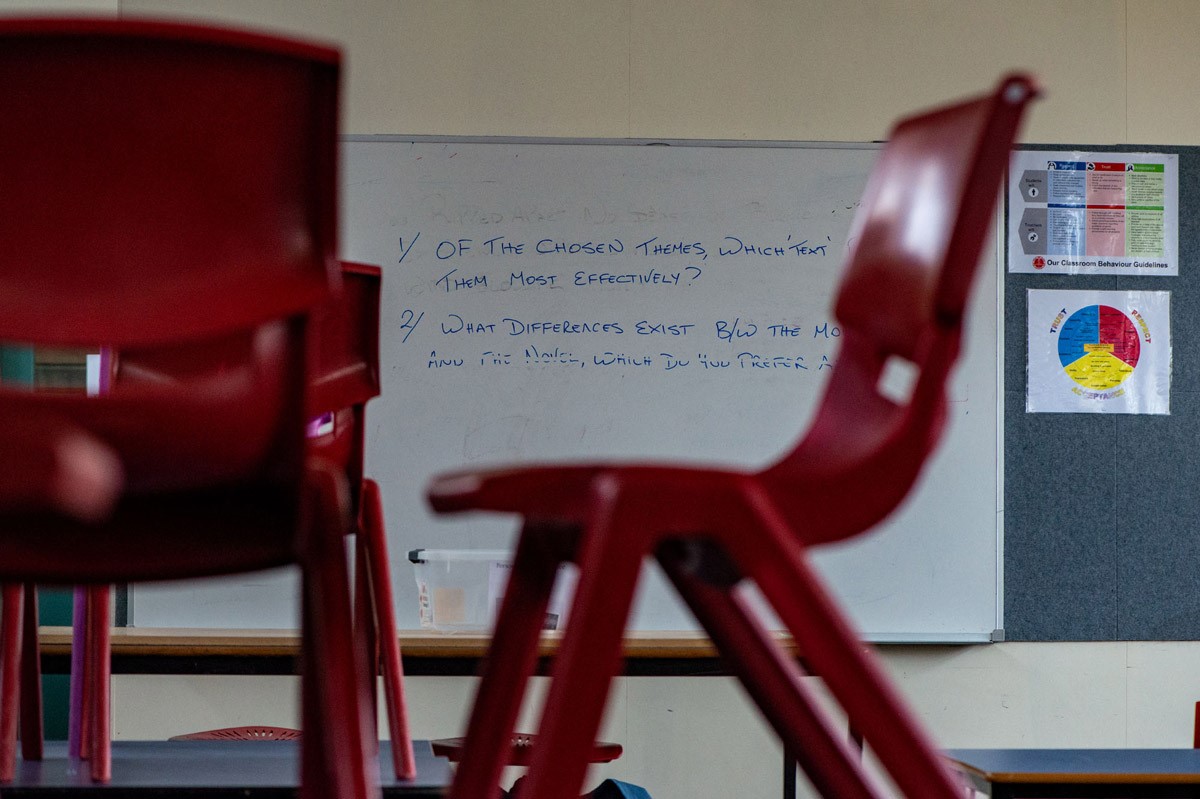 1/ OF THE CHOSEN THEMES, WHICH 'TEXT'
THEM MOST EFFECTIVELY?
2/ WHAT DIFFERENCES EXIST B/W THE MO
AND THE NOVEL, WHICH DO YOU PREFER A
Our Classroom Behaviour Guidelines
TRUST
RESPECT
ACCEPTANCE